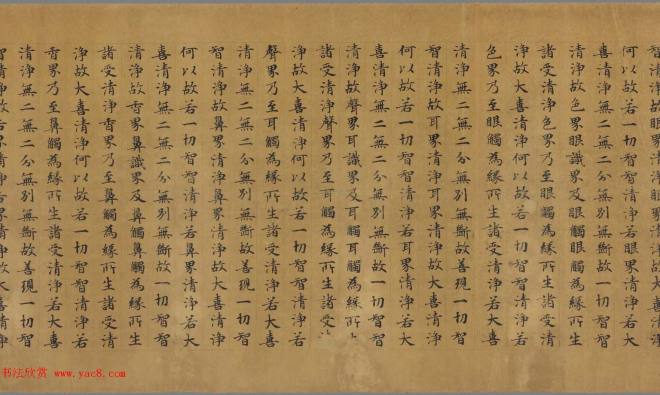 智清淨故眼界清淨眼界清淨故大喜清淨
何以故若一切智智清淨若眼界清淨若大
喜清淨無二無二分無別無斷故一切智智
清淨故色界眼識界及眼觸眼觸為緣所生
諸受清淨色界乃至眼觸為緣所生諸受清
淨故大喜清淨何以故若一切智智清淨若
色界乃至眼觸為緣所生諸受清淨若大喜
清淨無二無二分無別無斷故善現一切智
智清淨故耳界清淨耳界清淨故大喜清淨
何以故若一切智智清淨若耳界清淨若大
喜清淨無二無二分無別無斷故一切智智
清淨故聲界耳識界及耳觸耳觸為緣所生
諸受清淨聲界乃至耳觸為緣所生諸受清
淨故大喜清淨何以故若一切智智清淨若
聲界乃至耳觸為緣所生諸受清淨若大喜
清淨無二無二分無別無斷故善現一切智
智清淨故鼻界清淨鼻界清淨故大喜清淨
何以故若一切智智清淨若鼻界清淨若大
喜清淨無二無二分無別無斷故一切智智
清淨故香界鼻識界及鼻觸鼻觸為緣所生
諸受清淨香界乃至鼻觸為緣所生諸受清
淨故大喜清淨何以故若一切智智清淨若
香界乃至鼻觸為緣所生諸受清淨若大喜
清淨無二無二分無別無斷故善現一切智
智清淨故舌界清淨舌界清淨故大喜清淨
书法欣赏 www.yac8.com